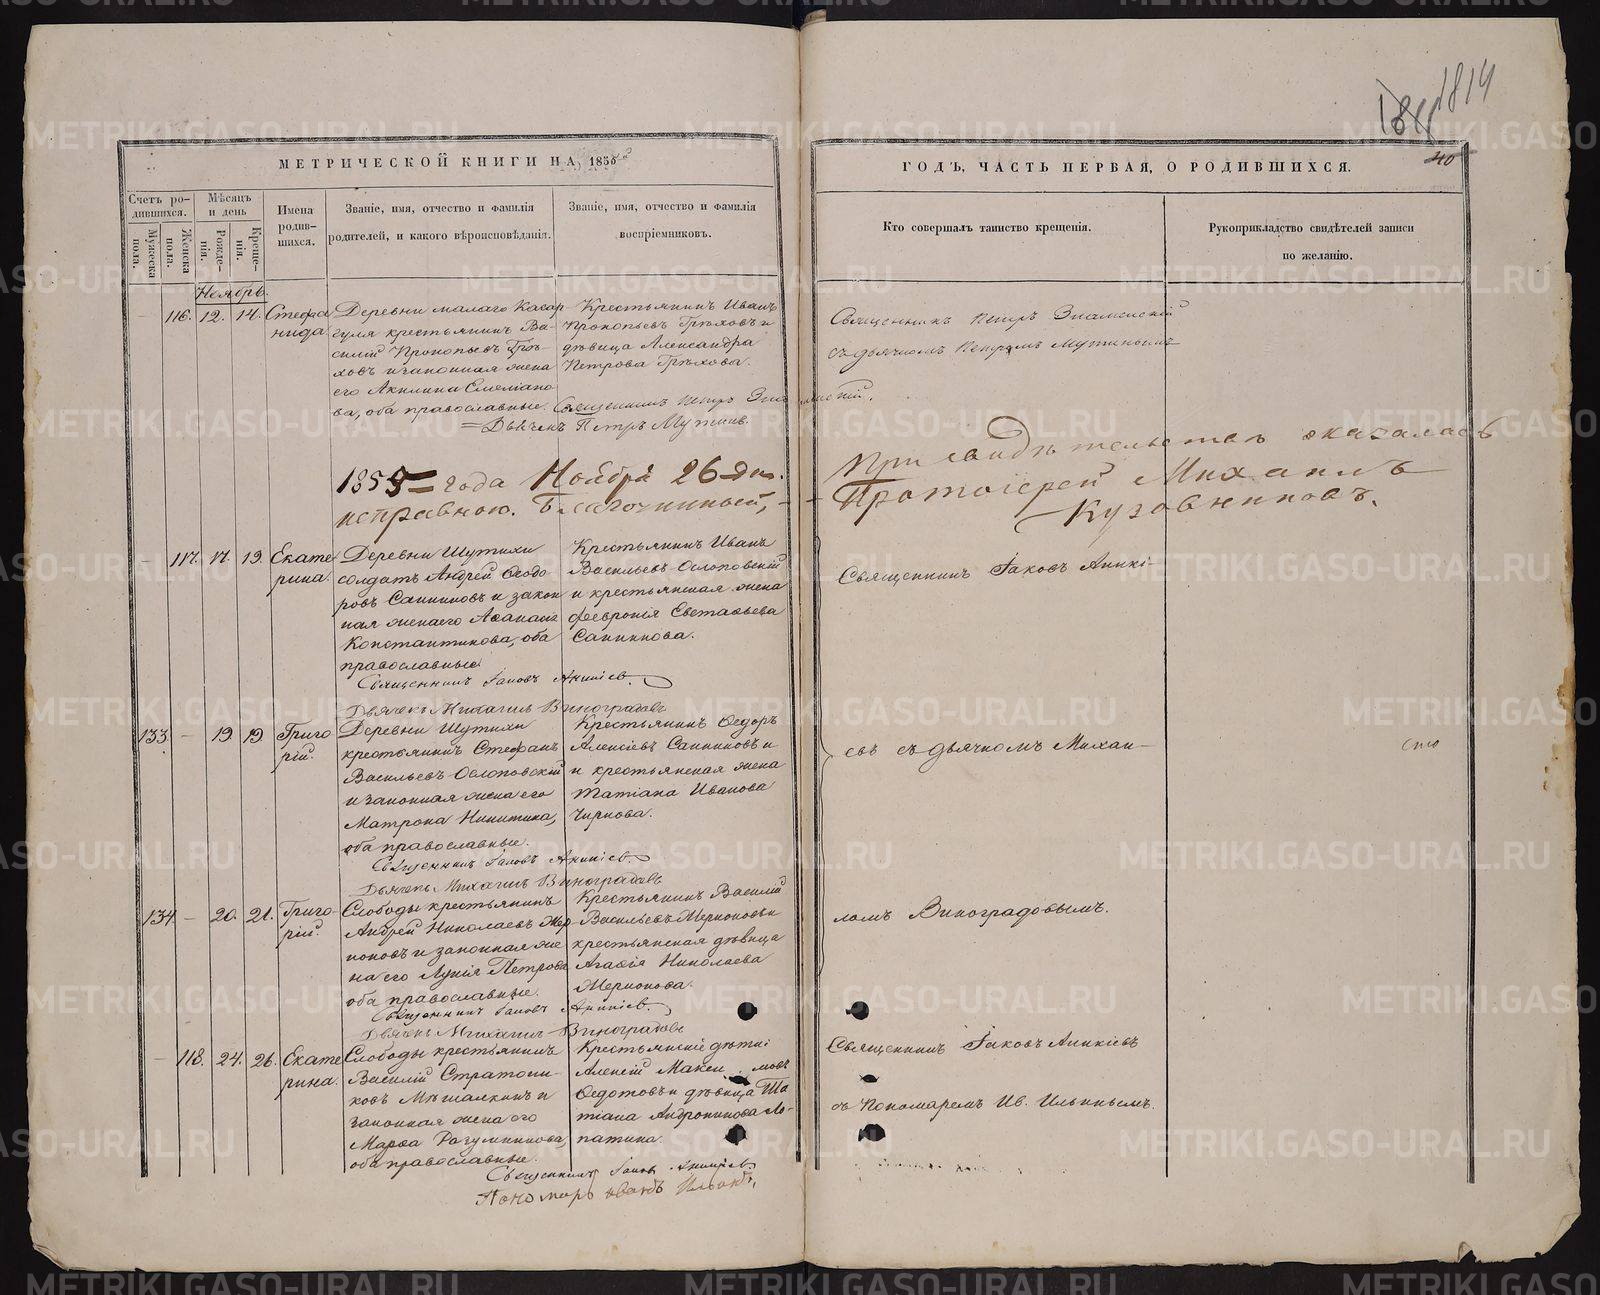 1814
40
МЕТРИЧЕСКОЙ КНИГИ НА 1855й
ГОДЪ, ЧАСТЬ ПЕРВАЯ, О РОДИВШИХСЯ.
Счетъ ро-
дившихся.
Мужеска
пола.
Женска
пола.
Мѣсяцъ
и день
Рожде-
нія.
Креще-
нія.
Имена
родив-
шихся.
Званіе, имя, отчество и фамилія
родителей, и какого вѣроисповѣданія.
Званіе, имя, отчество и фамилія
воспріемниковъ.
Кто совершалъ таинство крещенія.
Рукоприкладство свидѣтелей записи
по желанію.
Ноябрь.
116. 12. 14. Стефа
нида.
Деревни малаго Касар
гуля крестьянинъ Ва-
силій Прокопьевъ Грѣ-
ховъ и законная жена
его Акилина Емеліано
ва, оба православные.
Крестьянинъ Иванъ
Прокопьевъ Грѣховъ и
дѣвица Александра
Петрова Грѣхова.
Священникъ Петръ Знаменскій
съ дьячкомъ Петромъ Мутинымъ
Священникъ Петръ Знаменскій.
Дьячекъ Петръ Мутинъ.
1855 года Ноября 26 дня. При свидѣтельствѣ оказалась
исправною. Благочинный, Протоіерей Михаилъ
Кузовниковъ.
117. 17. 19. Екате
рина.
Деревни Шутихи
солдатъ Андрей Ѳеодо
ровъ Санниковъ и закон
ная жена его
Константинова, оба
православные
Крестьянинъ Иванъ
Васильевъ Ослоповскій
и крестьянская жена
Февронія Евстаѳьева
Санникова.
Священникъ Іаковъ Аники-
Священникъ Іаковъ Аникіевъ.
Дьячекъ Михаилъ Виноградовъ
133 – 19. 19 Григо
рій.
Деревни Шутихи
крестьянинъ Стефанъ
Васильевъ Ослоповскій
и законная жена его
Матрона Никитина,
оба православные.
Крестьянинъ Ѳедоръ
Алексіевъ Санниковъ и
и крестьянская жена
Татіана Иванова
Чиркова.
евъ съ дьячкомъ Михаи-
Священникъ Іаковъ Аникіевъ.
Дьячекъ Михаилъ Виноградовъ
134 – 20. 21. Григо-
рій.
Слободы крестьянинъ
Андрей Николаевъ Мер-
коновъ и законная же
на его Лукія Петрова
оба православные.
Крестьянинъ Василій
Васильевъ Меркоковъ и
крестьянская дѣвица
Агаѳія Николаева
Меркокова.
ломъ Виноградовымъ.
Священникъ Іаковъ Аникіевъ.
Дьячекъ Михаилъ Виноградовъ
– 118. 24. 26. Екате
рина.
Слободы крестьянинъ
Василій Стратони-
ковъ Мѣшалкинъ и
законная жена его
Марѳа Разумникова,
оба православные.
Крестьянскіе дѣти:
Алексій Макси мовъ
Ѳедотовъ и дѣвица Та
тіана Андроникова Ло-
патина.
Священникъ Іаковъ Аникіевъ
съ Пономаремъ Ив. Ильинымъ.
Священникъ Іаковъ Аникіевъ
Пономарь Иванъ Ильинъ,
METRIKI.GASO-URAL.RU